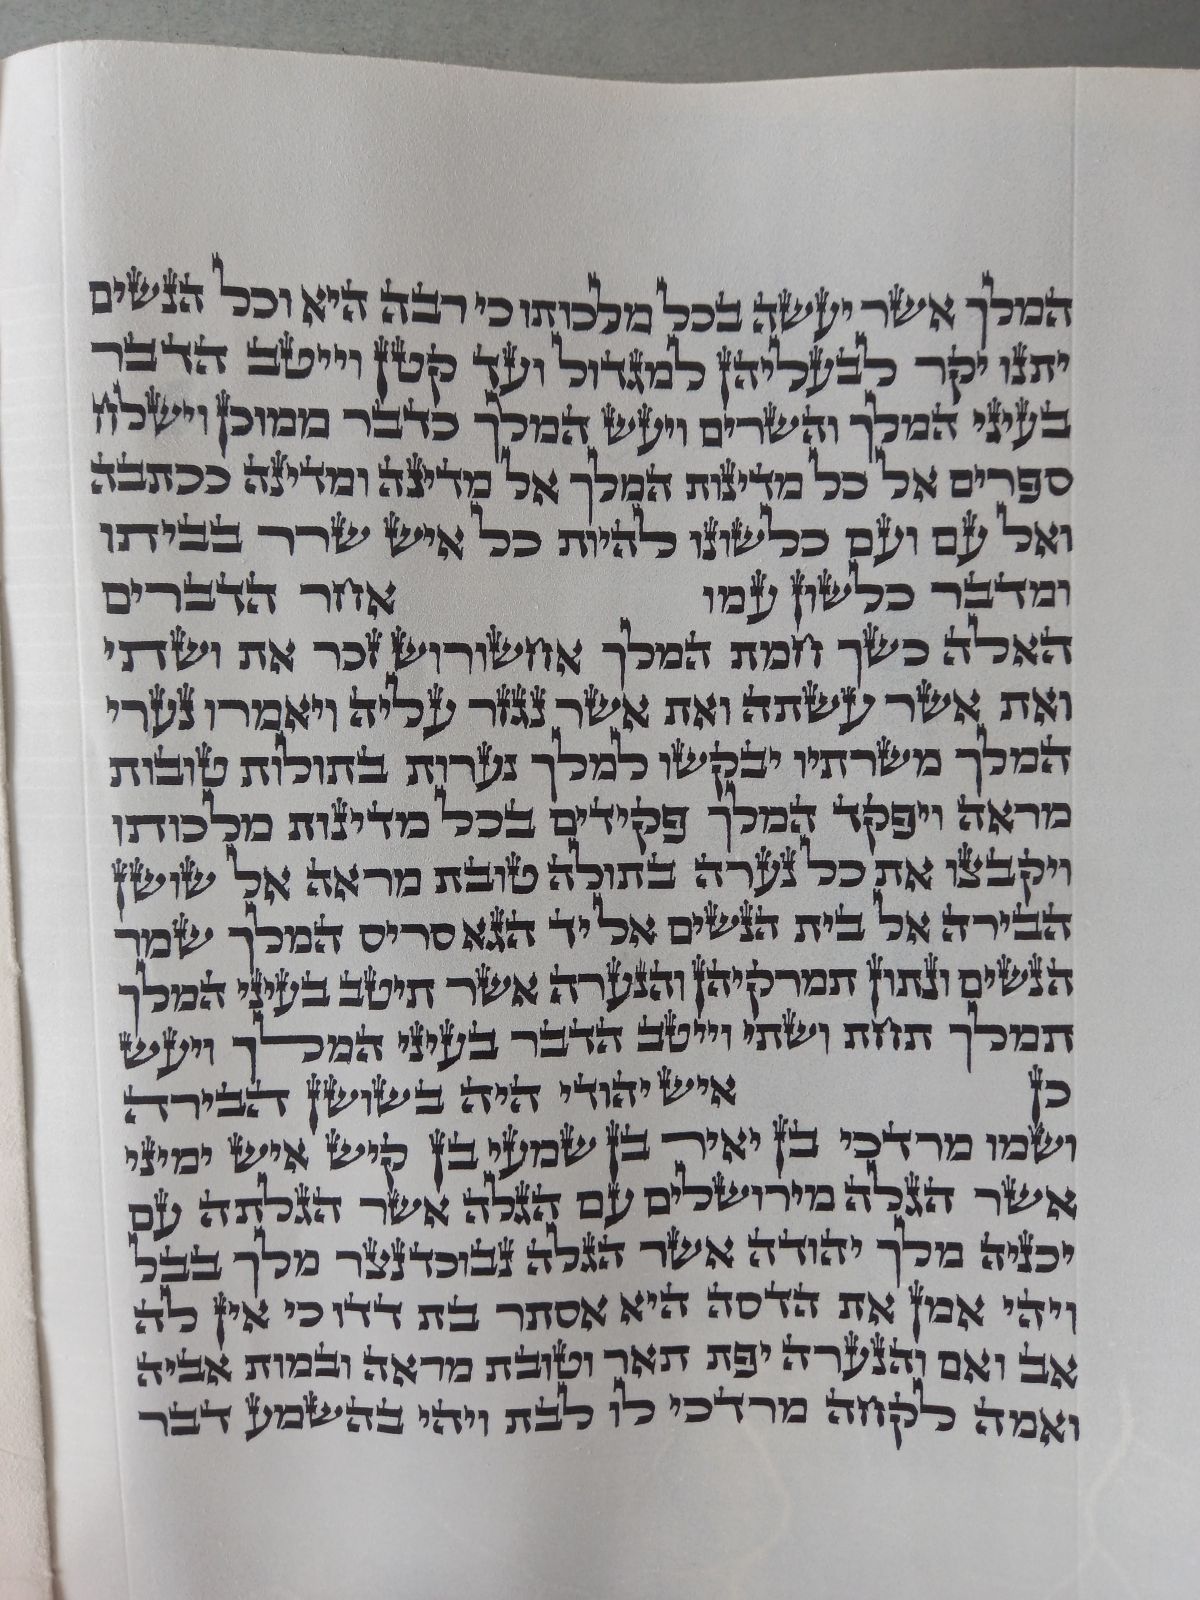 המלך אשר יעשה בכל מלכותו כי רבה היא וכל הנשים
יתנו יקר לבעליהן למגדול ועד קטן וייטב הדבר
בעיני המלך והשרים ויעש המלך כדבר ממוכן וישלח
ספרים אל כל מדינות המלך אל מדינה ומדינה ככתבה
ואל עם ועם כלשונו להיות כל איש שרר בביתו
ומדבר כלשון עמו אחר הדברים
האלה כשך חמת המלך אחשורוש זכר את ושתי
ואת אשר עשתה ואת אשר נגזר עליה ויאמרו נערי
המלך משרתיו יבקשו למלך נערות בתולות טובות
מראה ויפקד המלך פקידים בכל מדינות מלכותו
ויקבצו את כל נערה בתולה טובת מראה אל שושן
הבירה אל בית הנשים אל יד הגא סריס המלך שמר
הנשים ונתון תמרקיהן והנערה אשר תיטב בעיני המלך
תמלך תחת ושתי וייטב הדבר בעיני המלך ויעש
כן איש יהודי היה בשושן הבירה
ושמו מרדכי בן יאיר בן שמעי בן קיש איש ימיני
אשר הגלה מירושלים עם הגלה אשר הגלתה עם
יכניה מלך יהודה אשר הגלה נבוכדנצר מלך בבל
ויהי אמן את הדסה היא אסתר בת דדו כי אין לה
אב ואם והנערה יפת תאר וטובת מראה ובמות אביה
ואמה לקחה מרדכי לו לבת ויהי בהשמע דבר